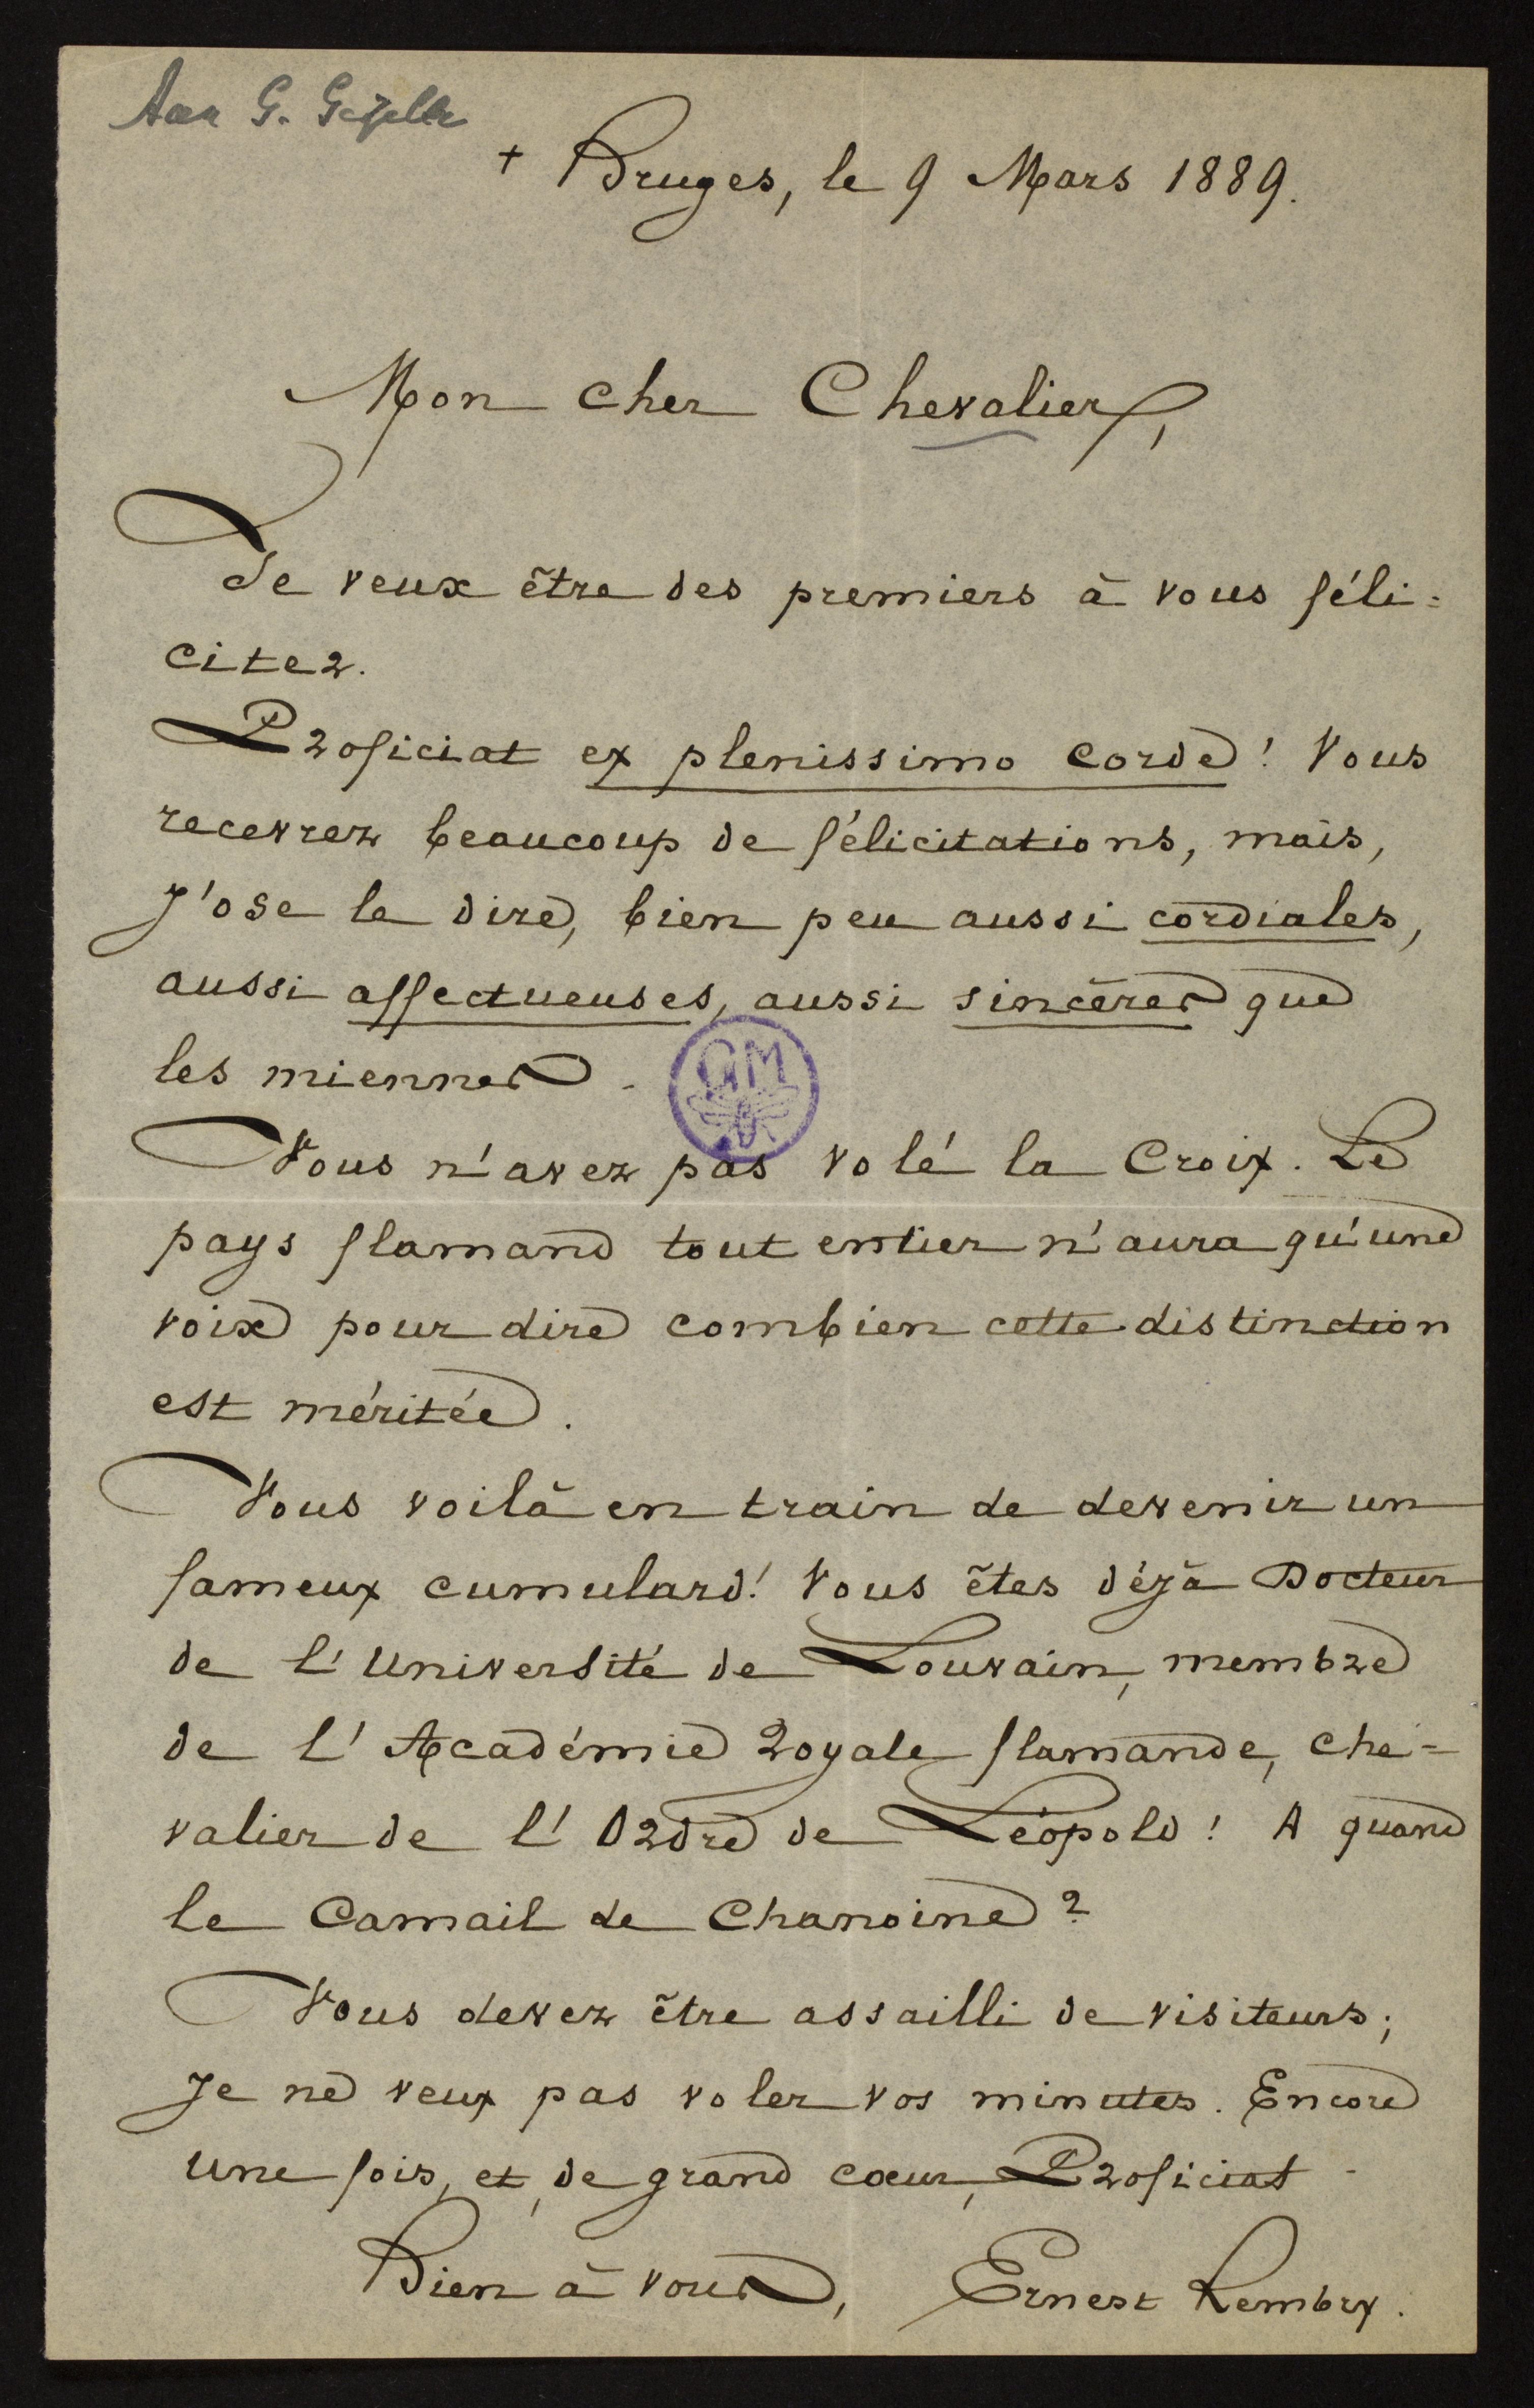 Aan G. Gezelle
+ Bruges, le 9 Mars 1889.
Mon cher Chevalier,
Je veux être des premiers à vous féli=
citer.
Proficiat ex plenissimo corde! Vous
recevrez beaucoup de félicitations, mais,
j'ose le dire, bien peu aussi cordiales,
aussi affectueuses, aussi sincères que
les miennes.
GM
Vous n'avez pas volé la Croix. Le
pays flamand tout entier n'aura qu'une
voix pour dire combien cette distinction
est méritée.
Vous voilà en train de devenir un
fameux cumulard! Vous êtes déjà Docteur
de l'Université de Louvain, membre
de l'Académie Royale flamande, che=
valier de l'Ordre de Léopold! A quand
le Camail de Chanoine?
Vous devez être assailli de visiteurs;
je ne veux pas voler vos minutes. Encore
une fois, et de grand cœur, Proficiat.
Bien à vous, Ernest Rembry.